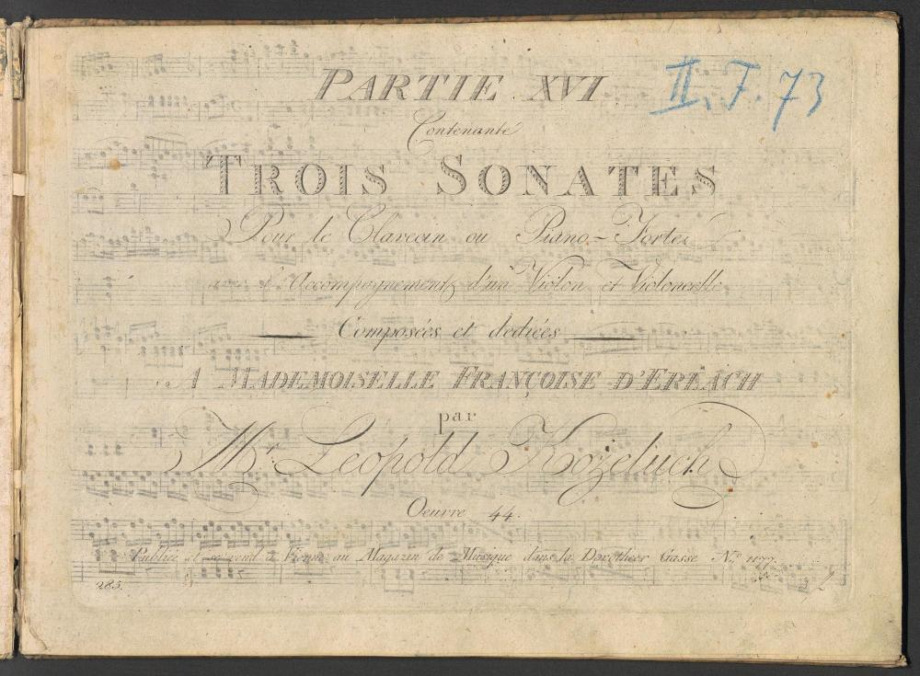 PARTIE XVI
II. F. 73
Contenante
TROIS SONATES
Pour le Clavecin ou Piano-Forte
avec l'Accompagnement d'un Violon et Violoncelle
Composées et dediées
A MADEMOISELLE FRANÇOISE D'ERLACH
par
Mr. Leopold Kozeluch
Oeuvre 44.
Publiée et se vend à Vienne au Magazin de Musique dans la Dorotheer Gasse No.
285.